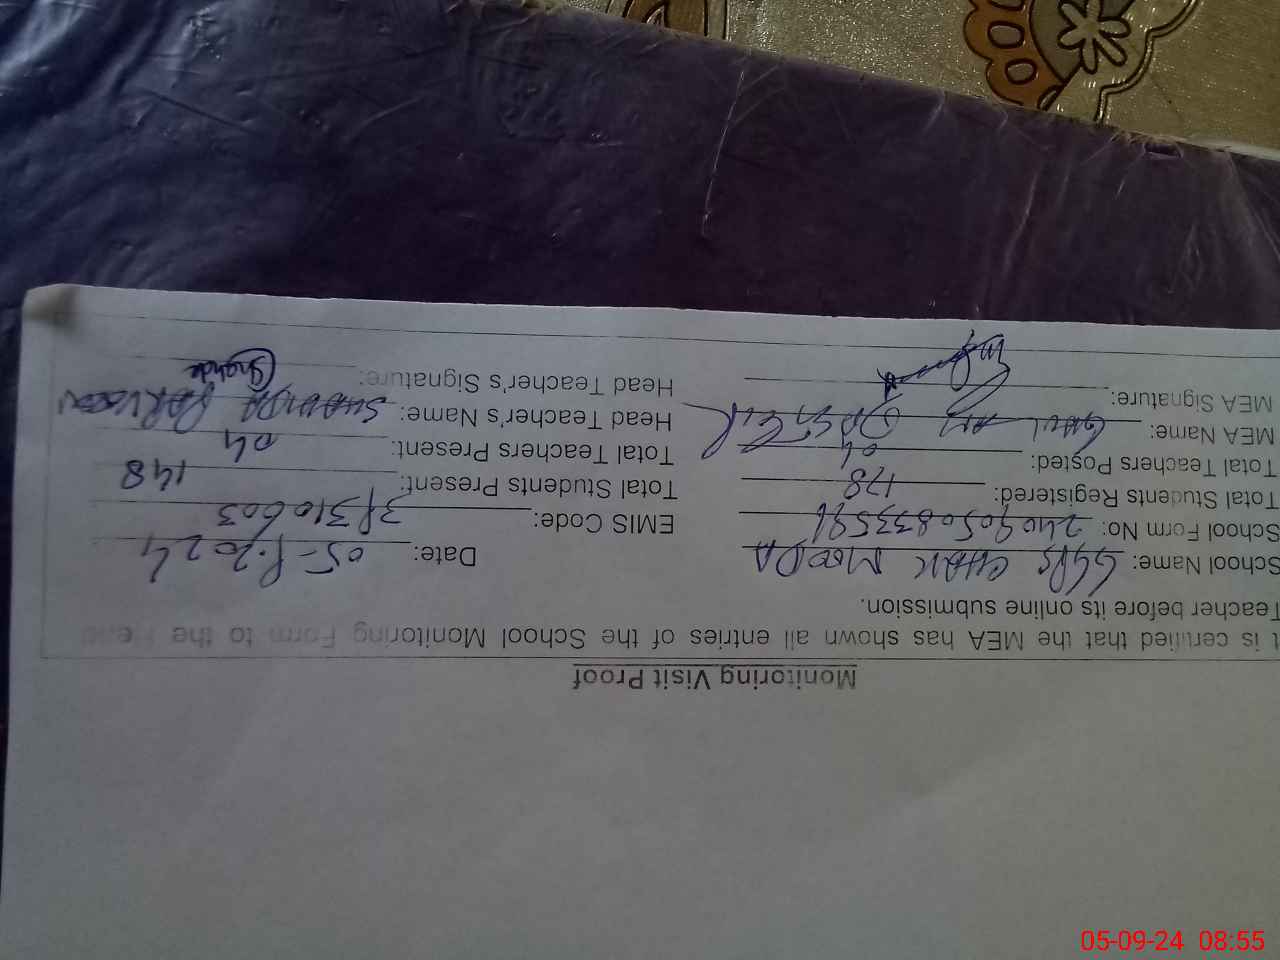 Monitoring Visit Proof
It is certified that the MEA has shown all entries of the School Monitoring Form to the Head
Teacher before its online submission.
School Name: GGPS CHAK MOODA Date: 05-9-2024
School Form No: 240905083359 EMIS Code: 37310603
Total Students Registered: 178 Total Students Present: 148
Total Teachers Posted: 04 Total Teachers Present: 04
MEA Name: Head Teacher's Name: SHAHIDA PARVEEN
MEA Signature: Head Teacher's Signature:
05-09-24 08:55